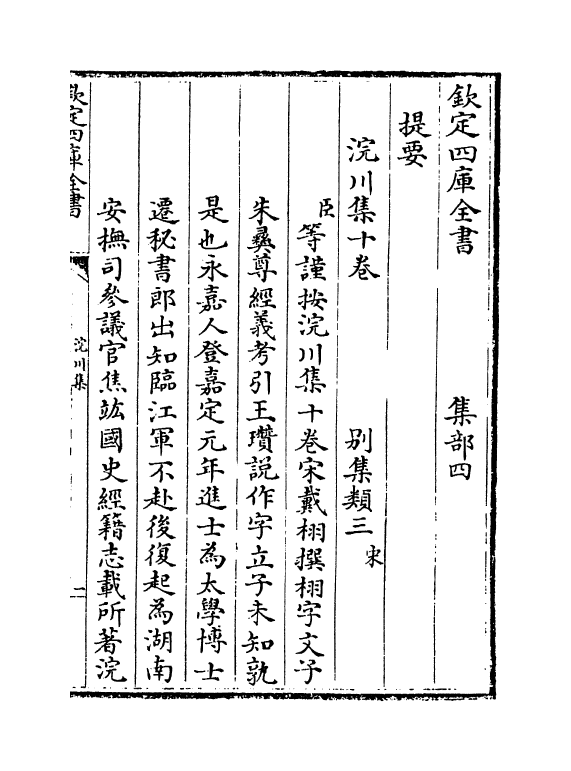 欽定四庫全書　集部四
提要
浣川集十卷　別集類三 宋
臣等謹按浣川集十卷宋戴栩撰栩字文子
朱彞尊經義考引王瓚說作字立子未知孰
是也永嘉人登嘉定元年進士為太學博士
遷秘書郎出知臨江軍不赴後復起為湖南
安撫司參議官焦竑國史經籍志載所著浣
欽定四庫全書
浣川集